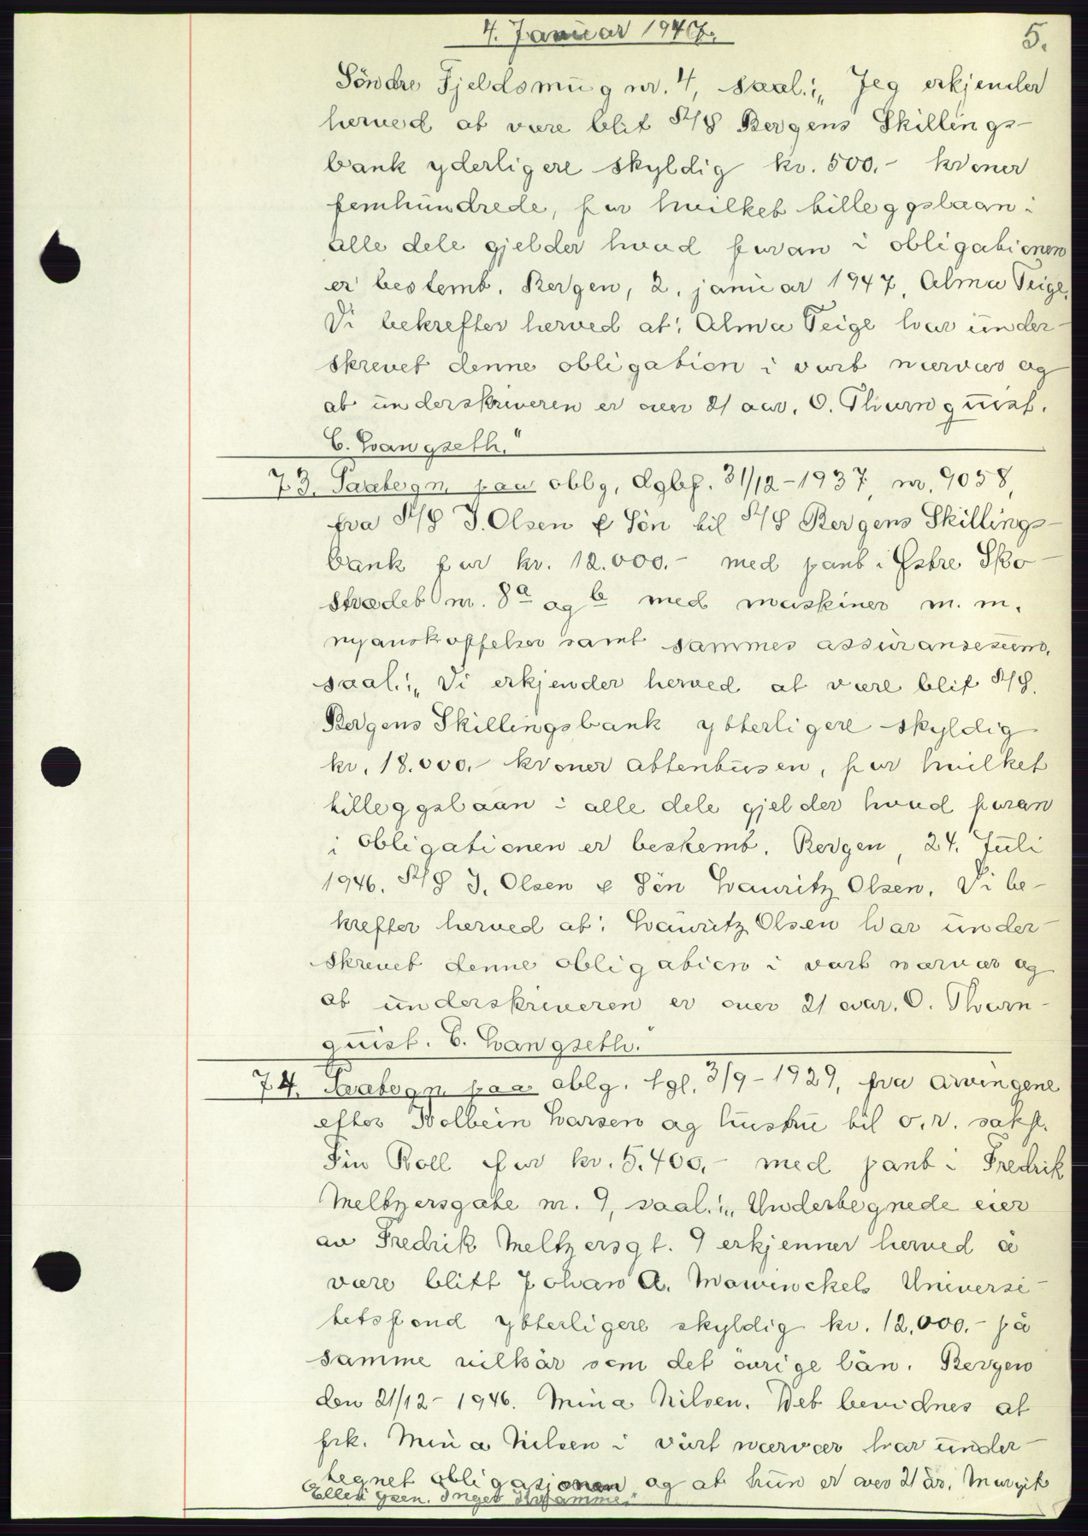 4. Januar 1947.
5.
Söndre Fjeldsmug nr. 4, saal.: „Jeg erkjender
herved at være blit A/S Bergens Skillings-
bank yderligere skyldig kr. 500.- kroner
femhundrede, for hvilket tilleggslaan i
alle dele gjelder hvad foran i obligationen
er bestemt. Bergen, 2. januar 1947. Alma Teige.
Vi bekrefter herved at: Alma Teige har under-
skrevet denne obligation i vort nærvær og
at underskriveren er over 21 aar. O. Thurnquist.
C. Langseth."
73. Paategn. paa oblg, dgbf. 31/12-1937, nr. 9058,
fra A/S J. Olsen & Sön til A/S Bergens Skillings-
bank for kr. 12.000.- med pant i Östre Sko-
strædet nr. 8a og b med maskiner m. m.
nyanskaffelser samt sammes assuransesum,
saal.: „Vi erkjender herved at være blit A/S.
Bergens Skillingsbank ytterligere skyldig
kr. 18.000.- kroner attentusen, for hvilket
tilleggslaan i alle dele gjelder hvad foran
i obligationen er bestemt. Bergen, 24. Juli
1946. A/S J. Olsen & Sön Lauritz Olsen. Vi be-
krefter herved at: Lauritz Olsen har under-
skrevet denne obligation i vort nærvær og
at underskriveren er over 21 aar. O. Thurn-
quist. C. Langseth."
74. Paategn. paa oblg. tgl. 3/9-1929, fra arvingene
efter Kolbein Larsen og hustru til o.r. sakf.
Fin Roll for kr. 5.400.- med pant i Fredrik
Meltzersgate nr. 9, saal.: „Undertegnede eier
av Fredrik Meltzersgt. 9 erkjenner herved å
være blitt Johan A. Mowinckels Universi-
tetsfond ytterligere skyldig kr. 12.000.- på
samme vilkår som det övrige lån. Bergen
den 21/12-1946. Mina Nilsen. Det bevidnes at
frk. Mina Nilsen i vårt nærvær har under-
tegnet obligasjonen og at hun er over 21 år. Margit
Ellen Ysen. Inger